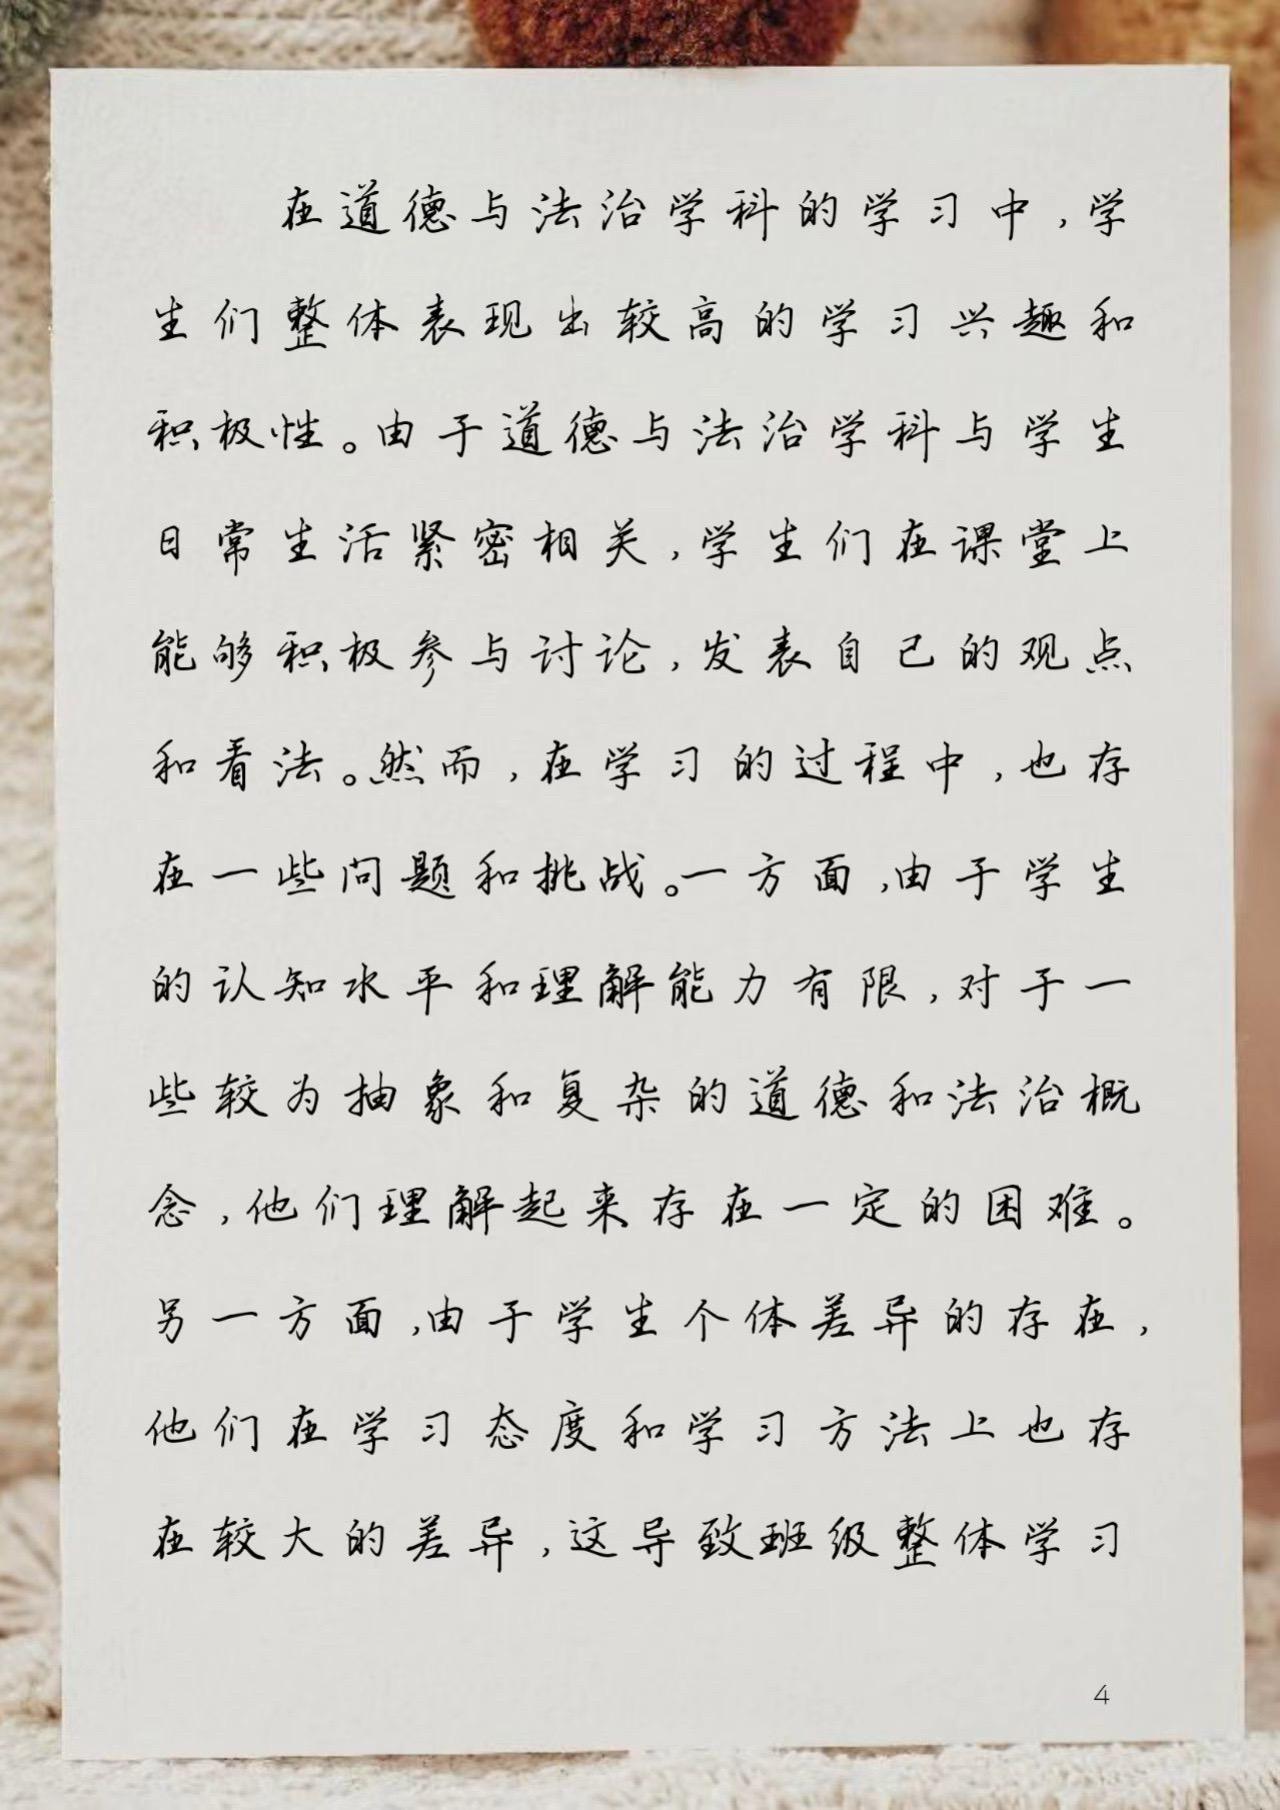 在道德与法治学科的学习中,学
生们整体表现出较高的学习兴趣和
积极性。由于道德与法治学科与学生
日常生活紧密相关,学生们在课堂上
能够积极参与讨论,发表自己的观点
和看法。然而,在学习的过程中,也存
在一些问题和挑战。一方面,由于学生
的认知水平和理解能力有限,对于一
些较为抽象和复杂的道德和法治概
念,他们理解起来存在一定的困难。
另一方面,由于学生个体差异的存在,
他们在学习态度和学习方法上也存
在较大的差异,这导致班级整体学习
4